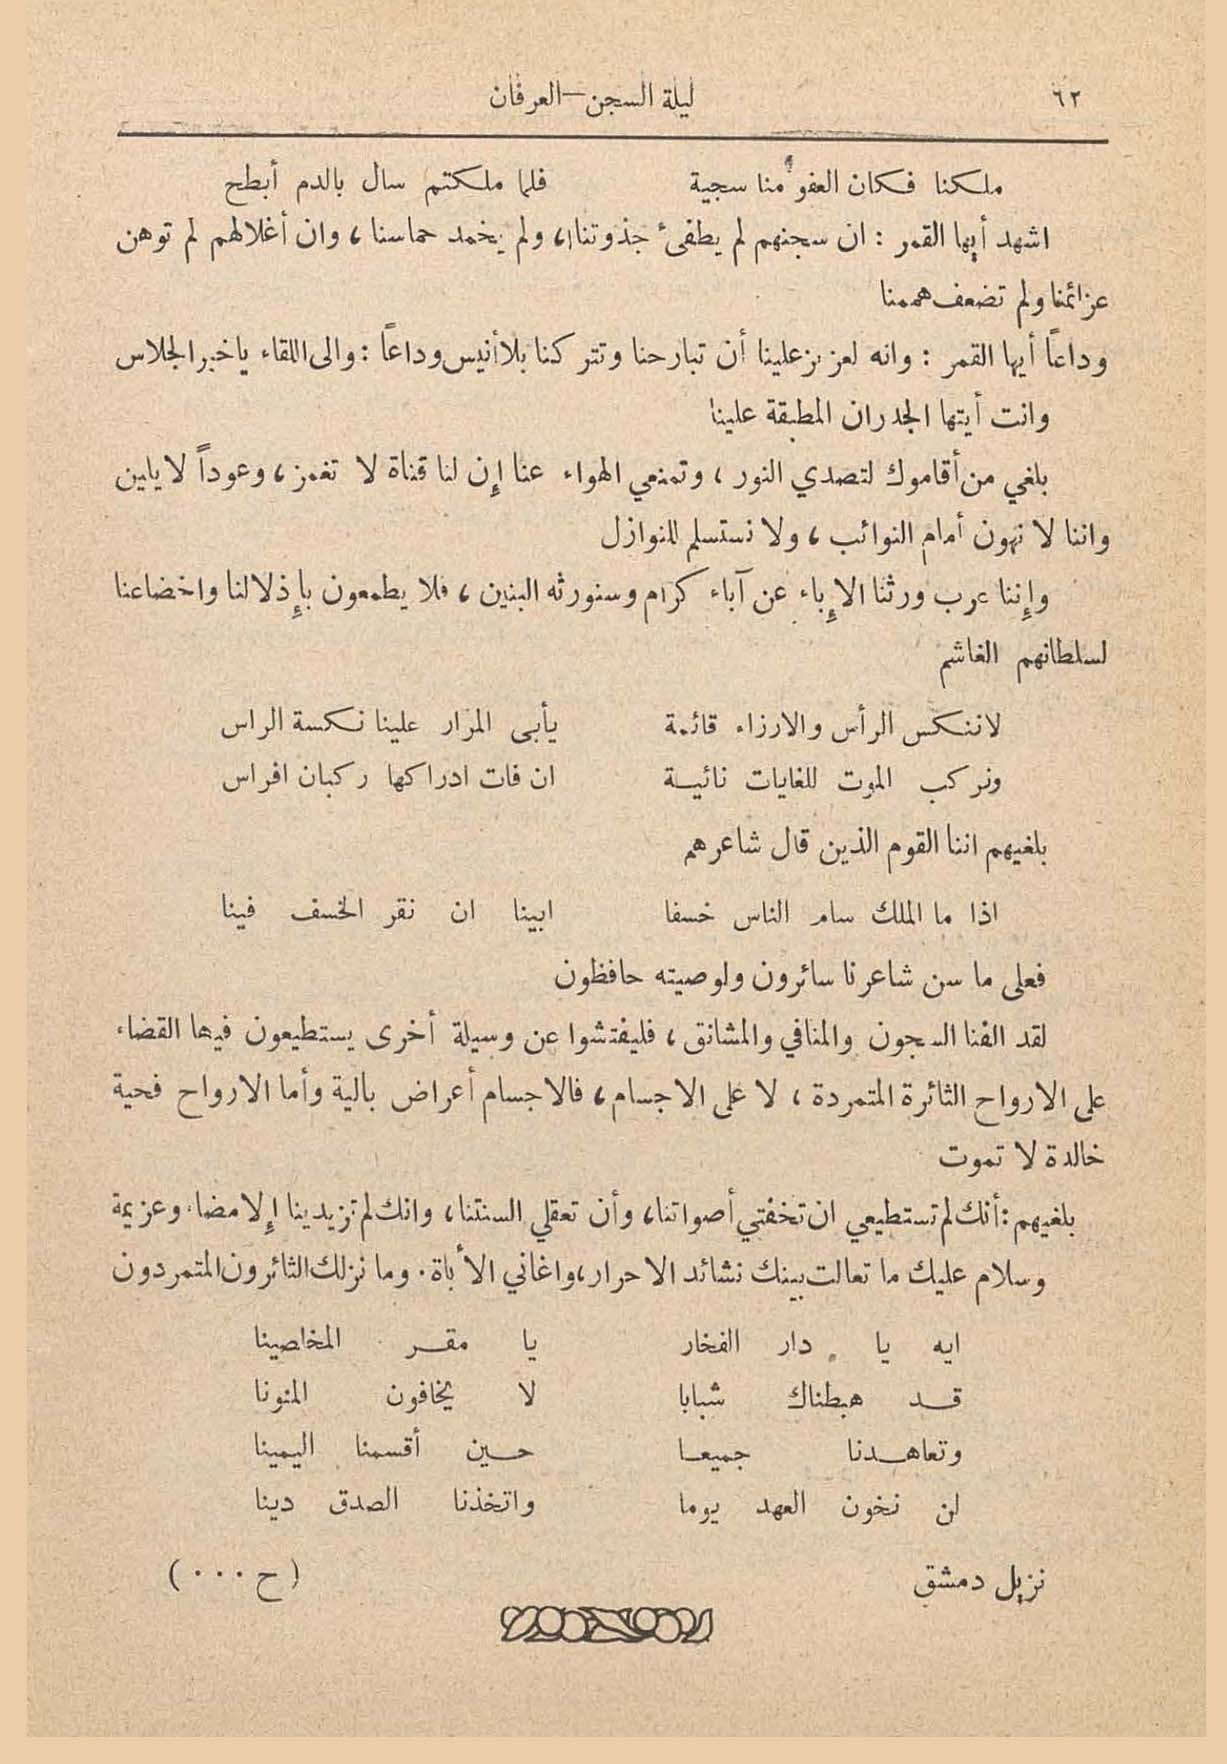 ٦٢ ليلة السجن—العرفان
ملكنا فكان العفو منا سجية فلما ملكتم سال بالدم أبطح
اشهد أيها القمر : ان سجنهم لم يطفىء جذوتنا، ولم يخمد حماسنا ، وان أغلالهم لم توهن
عزائمنا ولم تضعف هممنا
وداعاً أيها القمر : وانه لعزيز علينا أن تبارحنا وتتركنا بلا أنيس وداعاً : والى اللقاء ياخير الجلاس
وانت أيتها الجدران المطبقة علينا
بلغي من أقاموك لتصدي النور ، وتمنعي الهواء عنا إن لنا قناة لا تغمز ، وعوداً لا يلين
واننا لا نهون أمام النوائب ، ولا نستسلم للنوازل
وإننا عرب ورثنا الإباء عن آباء كرام وسنورثه البنين ، فلا يطمعون بإذلالنا واخضاعنا
لسلطانهم الغاشم
لاننكس الرأس والارزاء قائمة يأبى المرار علينا نكسة الراس
ونركب الموت للغايات نائية ان فات ادراكها ركبان افراس
بلغيهم اننا القوم الذين قال شاعرهم
اذا ما الملك سام الناس خسفا ابينا ان نقر الخسف فينا
فعلى ما سن شاعرنا سائرون ولوصيته حافظون
لقد الفنا السجون والمنافي والمشانق ، فليفتشوا عن وسيلة أخرى يستطيعون فيها القضاء
على الارواح الثائرة المتمردة ، لا على الاجسام ، فالاجسام أعراض بالية وأما الارواح فحية
خالدة لا تموت
بلغيهم : أنك لم تستطيعي ان تخفتي أصواتنا، وأن تعقلي السنتنا، وانك لم تزيدينا إلا مضاء وعزيمة
وسلام عليك ما تعالت بينك نشائد الاحرار، واغاني الأباة . وما نزلك الثائرون المتمردون
ايه يا دار الفخار يا مقر المخلصينا
قد هبطناك شبابا لا يخافون المنونا
وتعاهدنا جميعا حين أقسمنا اليمينا
لن نخون العهد يوما واتخذنا الصدق دينا
نزيل دمشق (ح ٠٠٠)